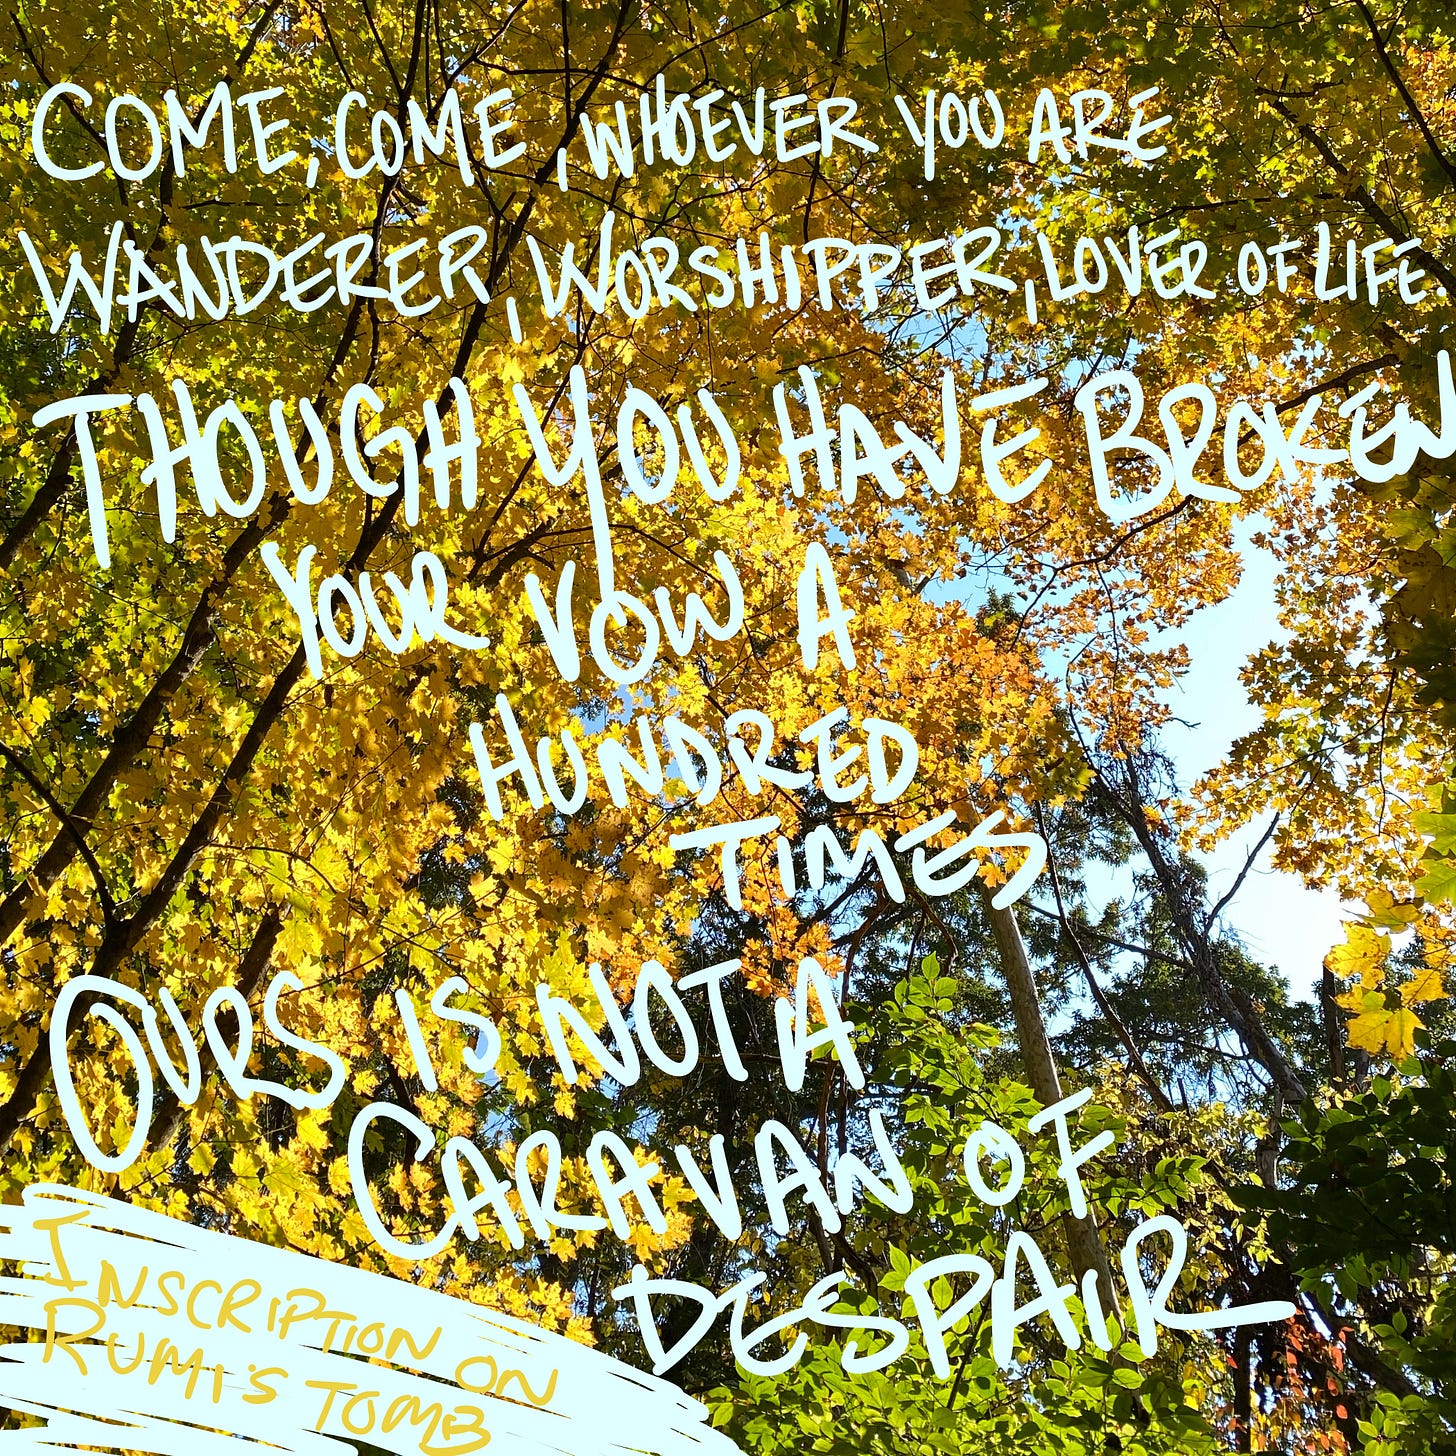 COME, COME, WHOEVER YOU ARE
WANDERER, WORSHIPPER, LOVER OF LIFE.
THOUGH YOU HAVE BROKEN
YOUR VOW A
HUNDRED
TIMES
OURS IS NOT A
CARAVAN OF
DESPAIR
INSCRIPTION ON
RUMI'S TOMB